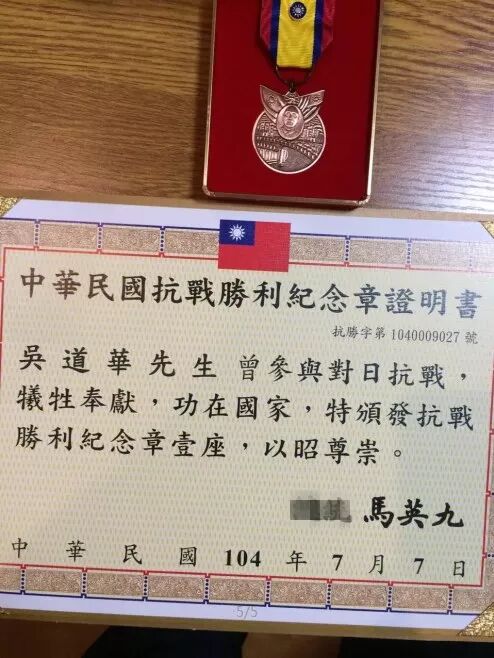 中華民國抗戰勝利紀念章證明書
抗勝字第1040009027號
吳道華先生曾參與對日抗戰，
犧牲奉獻，功在國家，特頒發抗戰
勝利紀念章壹座，以昭尊崇。
馬英九
中華民國104年7月7日
5/5